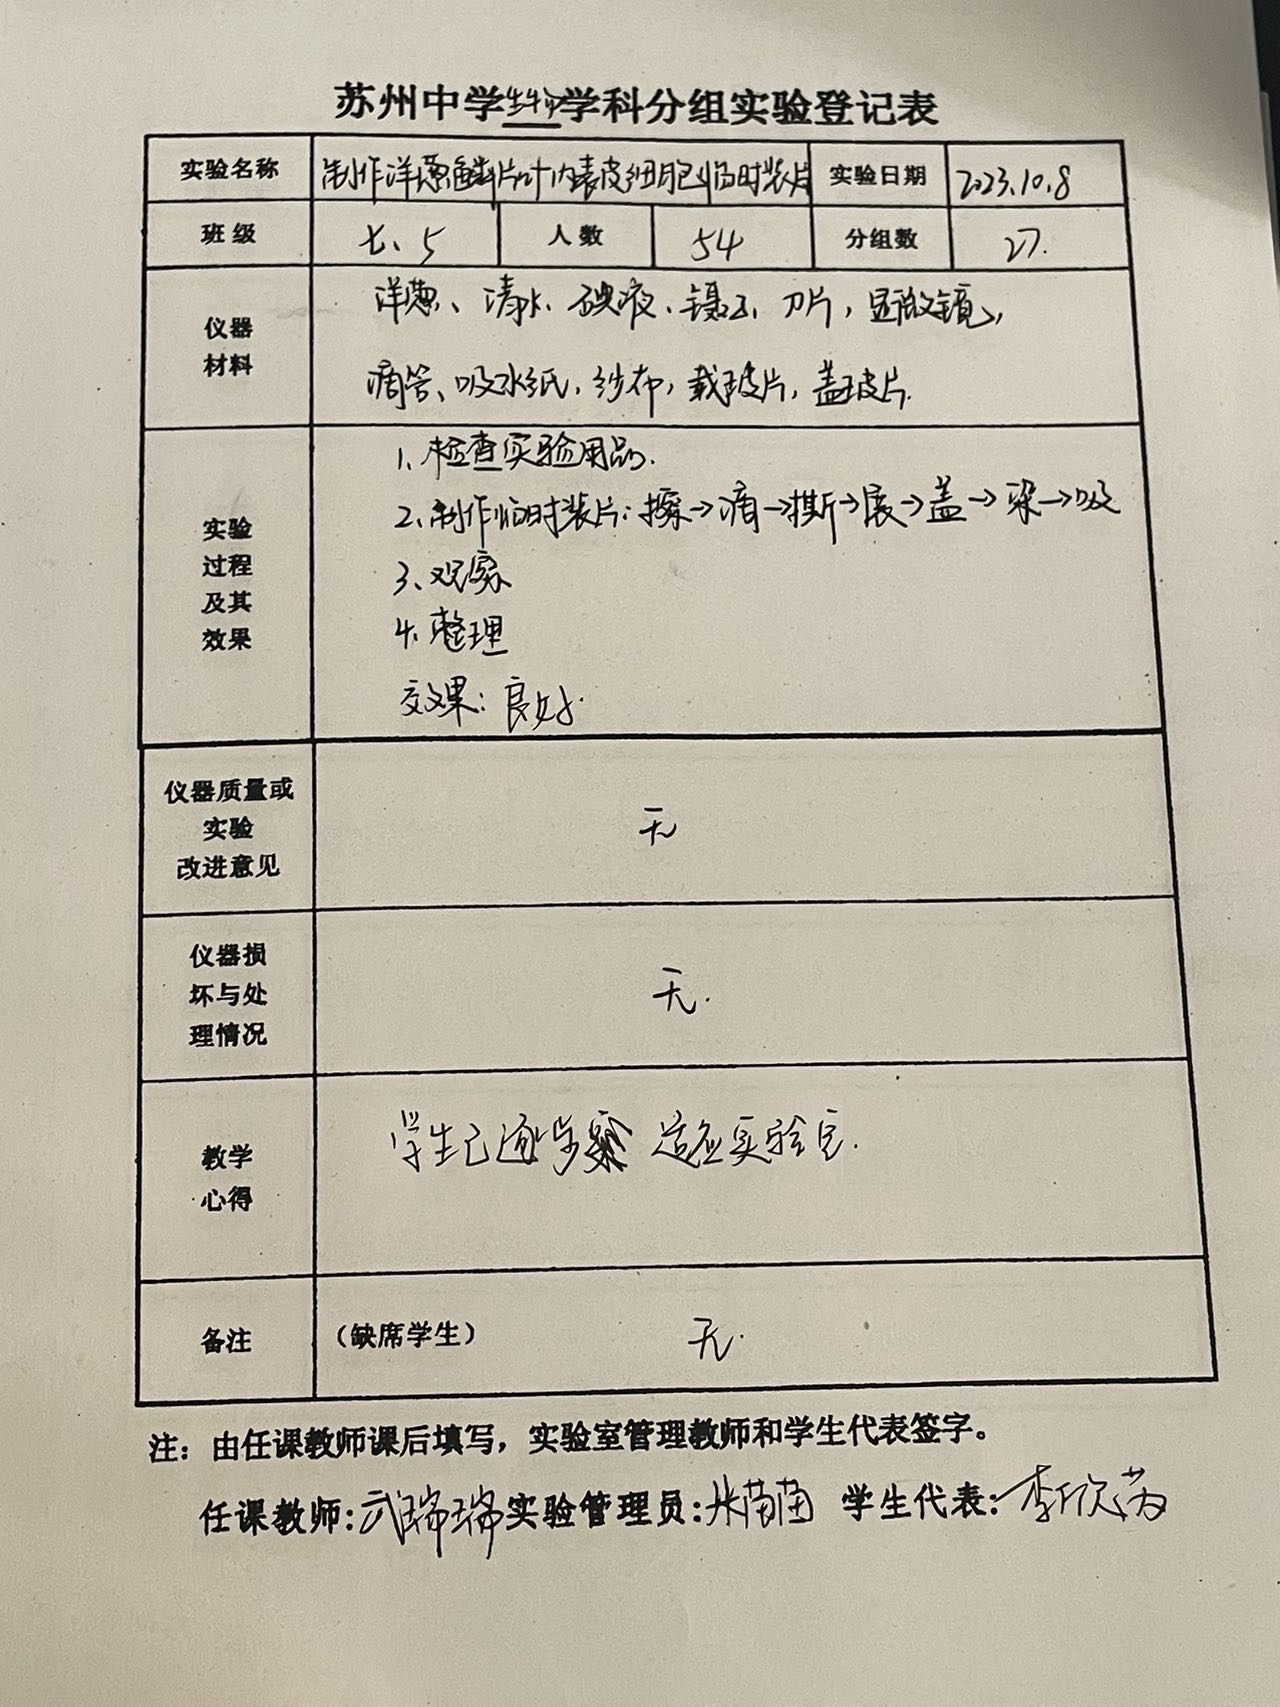 苏州中学生物学科分组实验登记表
实验名称 制作洋葱鳞片叶内表皮细胞临时装片 实验日期 2023.10.8
班级 七、5 人数 54 分组数 27.
仪器
材料
洋葱、清水、碘液、镊子、刀片，显微镜，
滴管、吸水纸，纱布，载玻片，盖玻片.
实验
过程
及其
效果
1、检查实验用品.
2、制作临时装片：擦→滴→撕→展→盖→染→吸
3、观察
4、整理
效果：良好.
仪器质量或
实验
改进意见
无
仪器损
坏与处
理情况
无.
教学
心得
学生已逐步 适应实验室.
备注 （缺席学生） 无.
注：由任课教师课后填写，实验室管理教师和学生代表签字。
任课教师：武瑞瑞 实验管理员： 学生代表：李欣